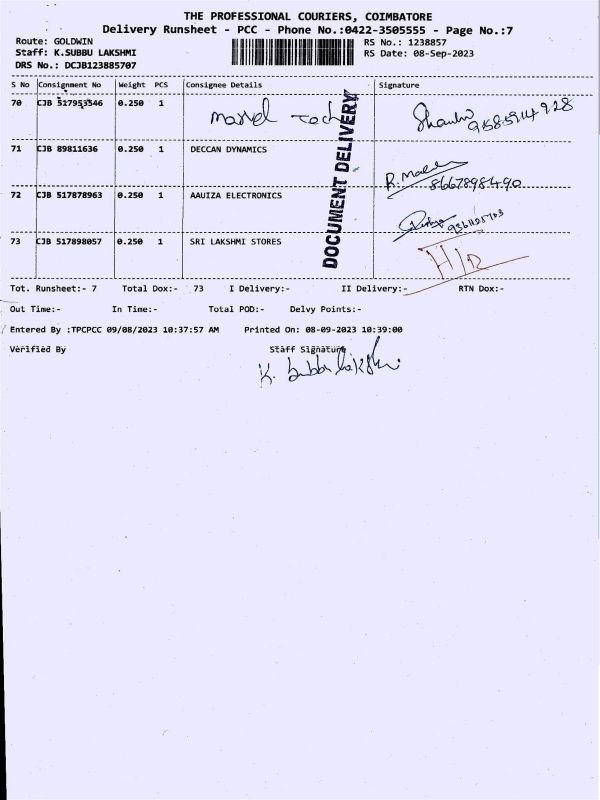 THE PROFESSIONAL COURIERS, COIMBATORE
Delivery Runsheet - PCC - Phone No.:0422-3505555 - Page No.:7
Route: GOLDWIN RS No.: 1238857
Staff: K.SUBBU LAKSHMI RS Date: 08-Sep-2023
DRS No.: DCJB123885707
S No Consignment No Weight PCS Consignee Details Signature
70 CJB 517953546 0.250 1 Marvel Tech
71 CJB 89811636 0.250 1 DECCAN DYNAMICS
8667898490
72 CJB 517878963 0.250 1 AAUIZA ELECTRONICS
73 CJB 517898057 0.250 1 SRI LAKSHMI STORES
DOCUMENT DELIVERY
Tot. Runsheet:- 7 Total Dox:- 73 I Delivery:- II Delivery:- RTN Dox:-
Out Time:- In Time:- Total POD:- Delvy Points:-
Entered By :TPCPCC 09/08/2023 10:37:57 AM Printed On: 08-09-2023 10:39:00
Verified By Staff Signature
K. Subbu lakshmi